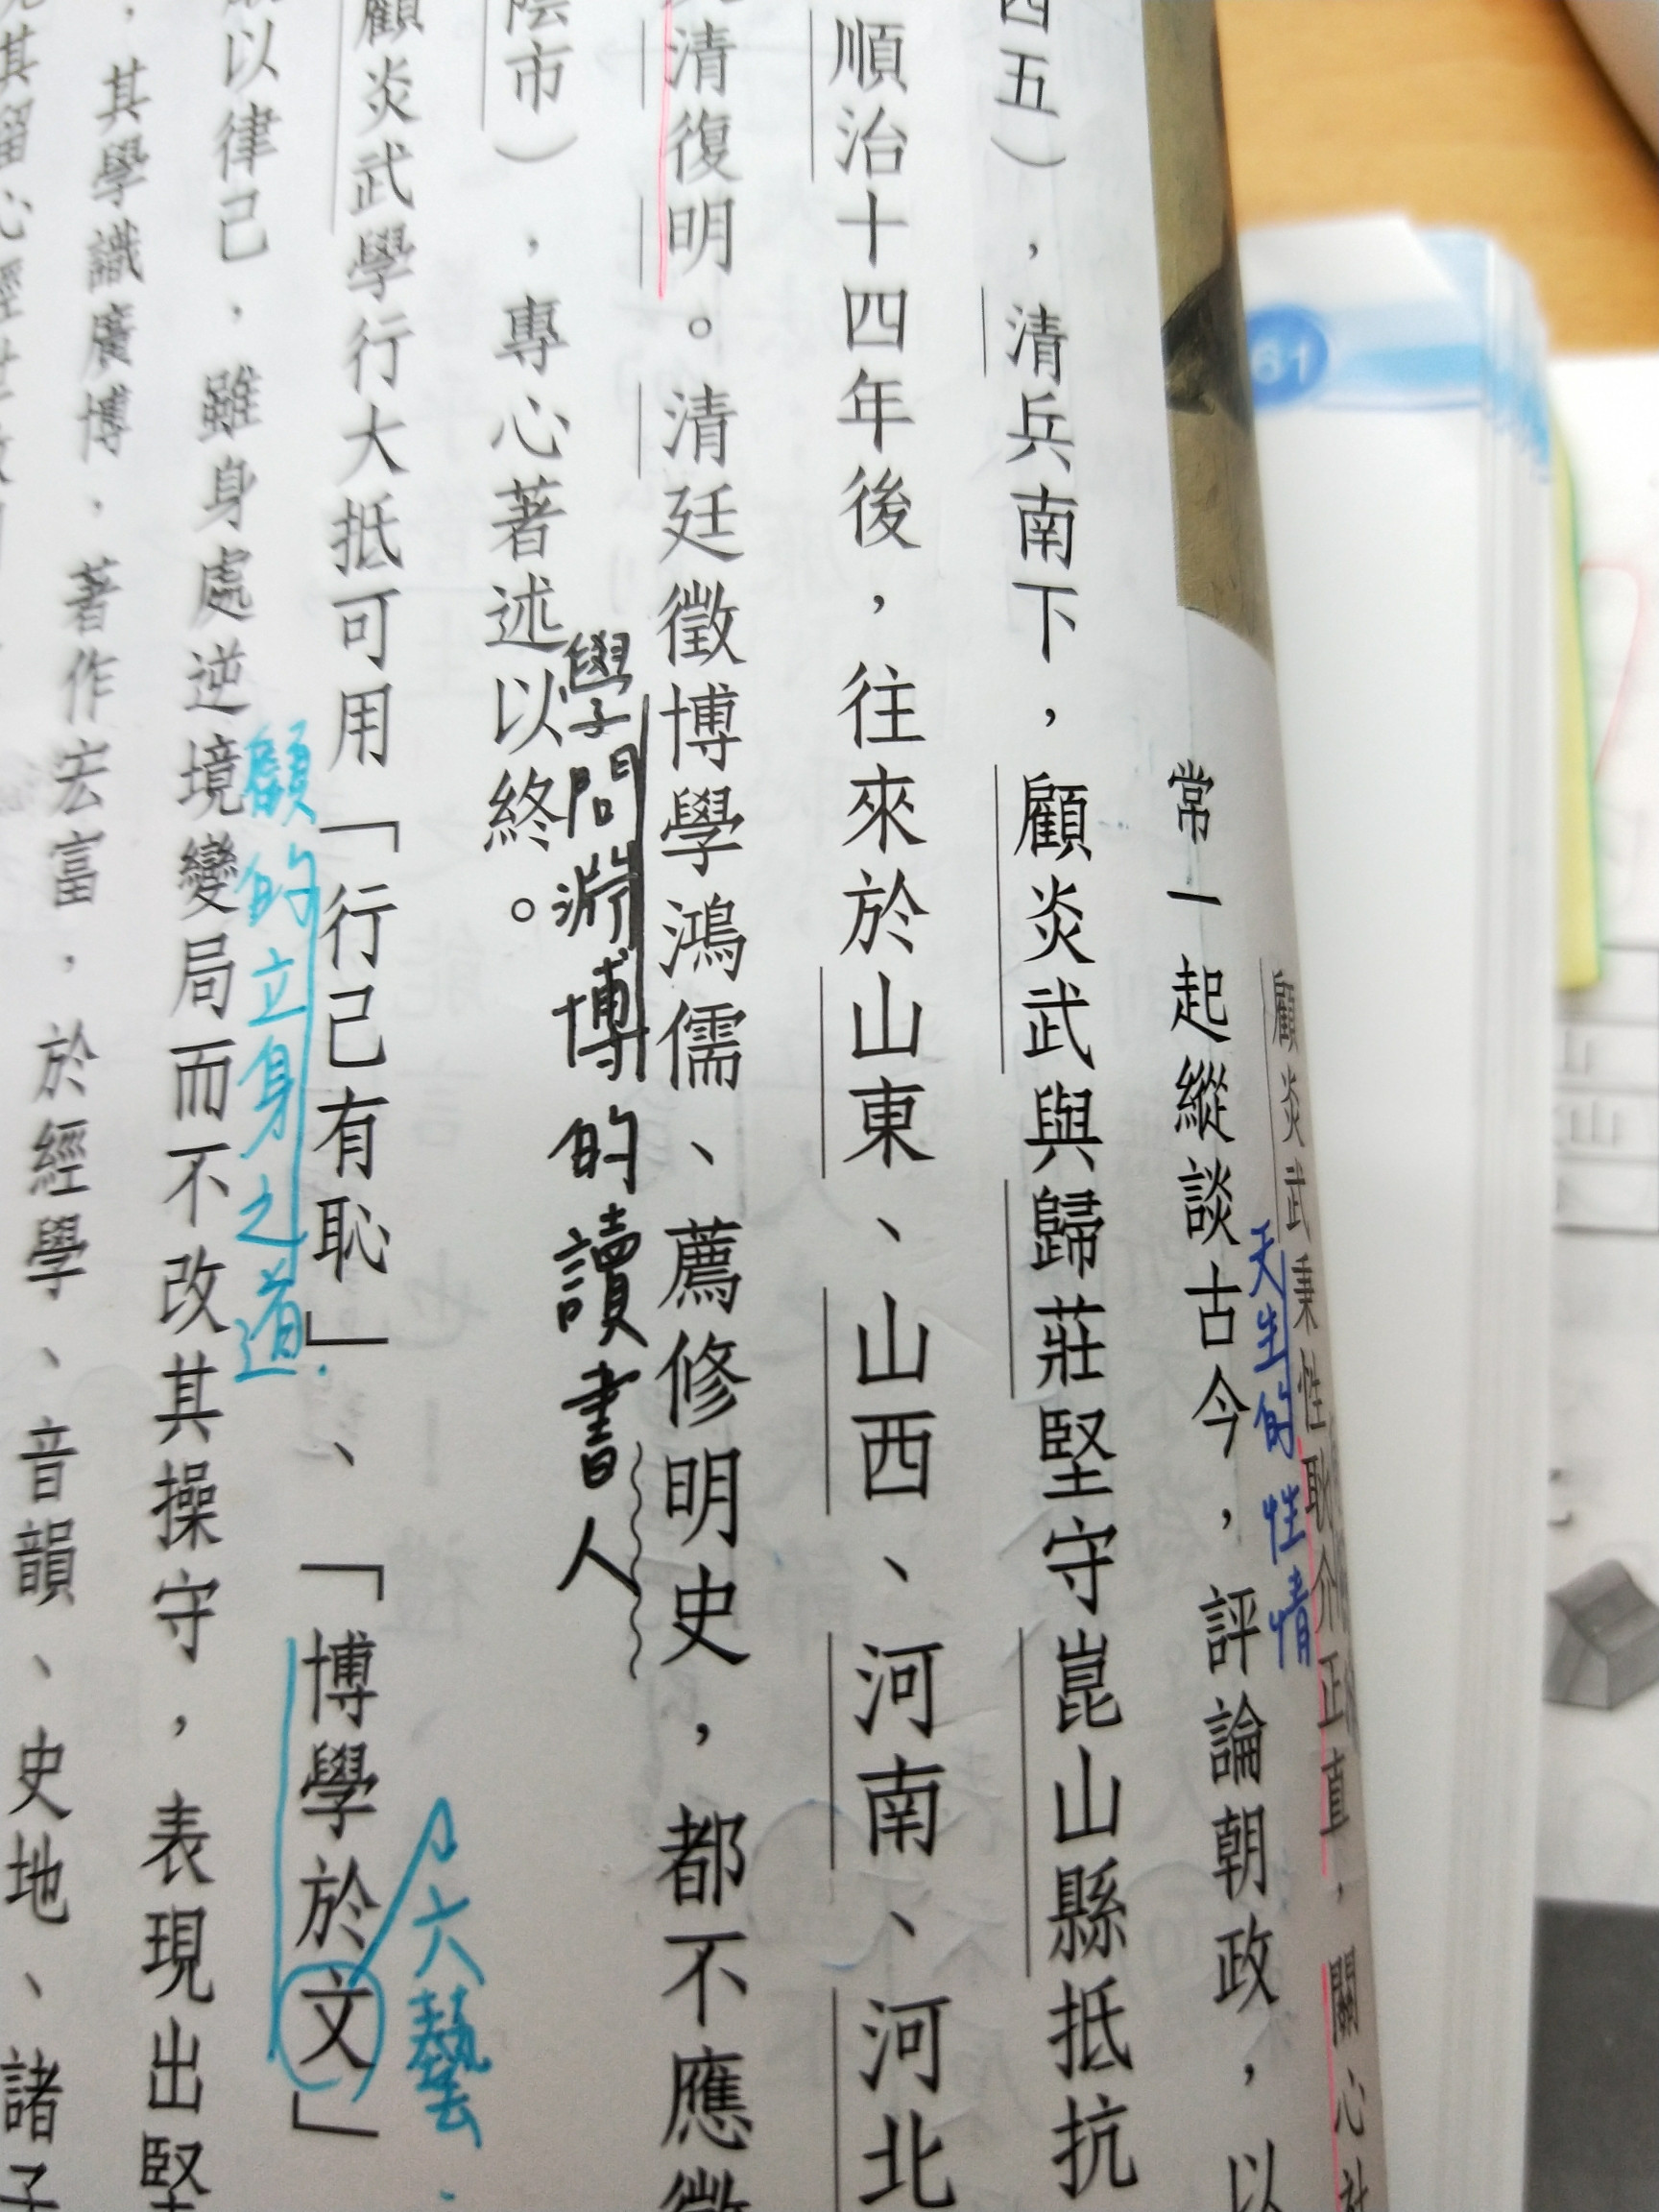 61
顧炎武秉性耿介正直，關心社
天生的性情
常一起縱談古今，評論朝政，以
四五），清兵南下，顧炎武與歸莊堅守崑山縣抵抗
順治十四年後，往來於山東、山西、河南、河北
清復明。清廷徵博學鴻儒、薦修明史，都不應徵
學問淵博的讀書人
陰市），專心著述以終。
六藝
顧炎武學行大抵可用「行己有恥」、「博學於文」
顧的立身之道
以律己，雖身處逆境變局而不改其操守，表現出堅
，其學識廣博，著作宏富，於經學、音韻、史地、諸子
其留心經世